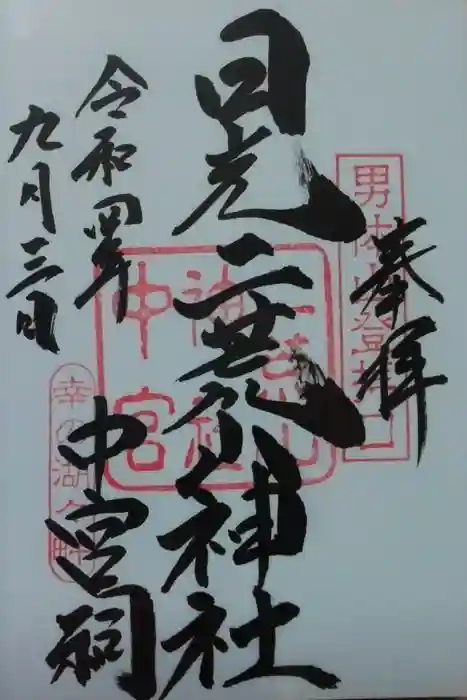 奉拝
男体山登拝口
日光二荒山神社
中宮祠
二荒山
神社
中宮
令和四年
九月三日
幸の湖の畔